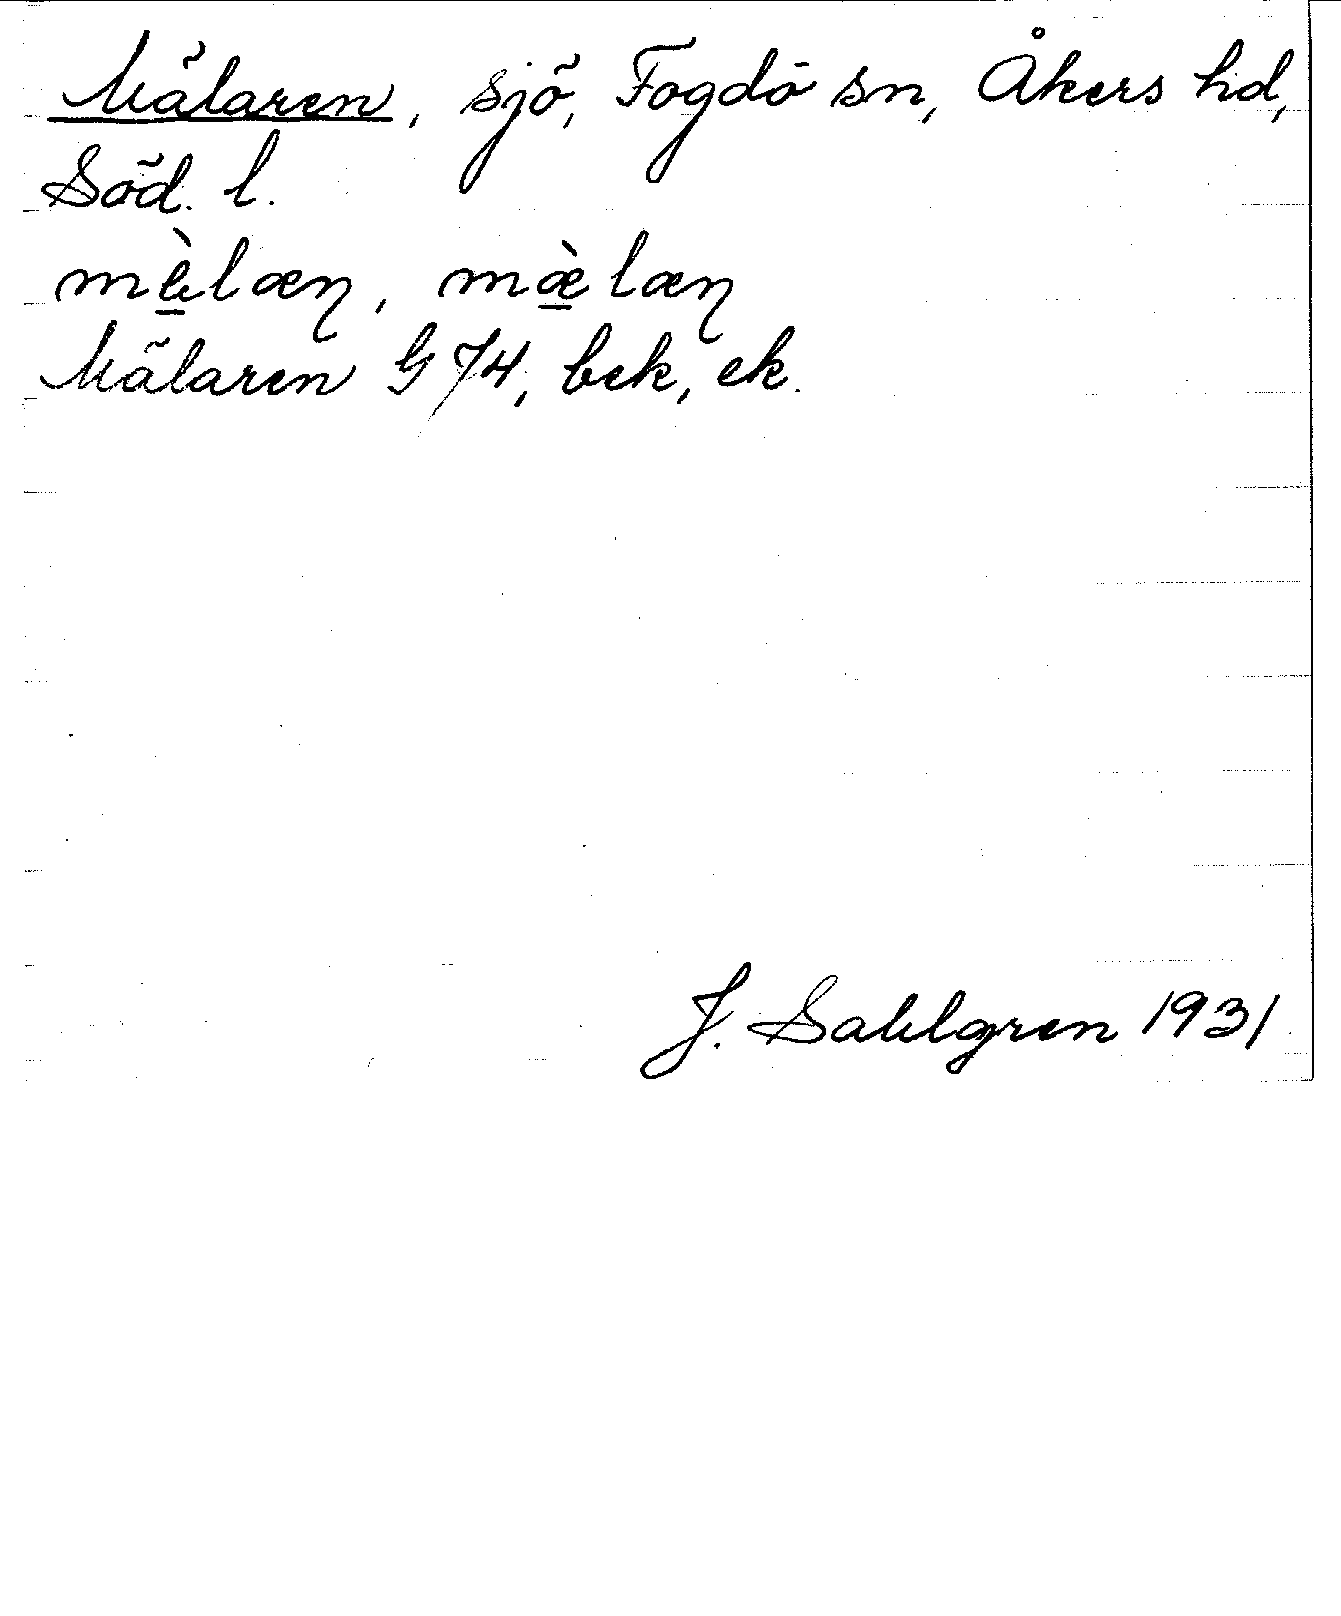 Mälaren, sjö, Fogdö sn, Åkers hd,
Söd. l.
mæ̲̀læɳ
Mälaren G 74, bek, ek.
J. Sahlgren 1931